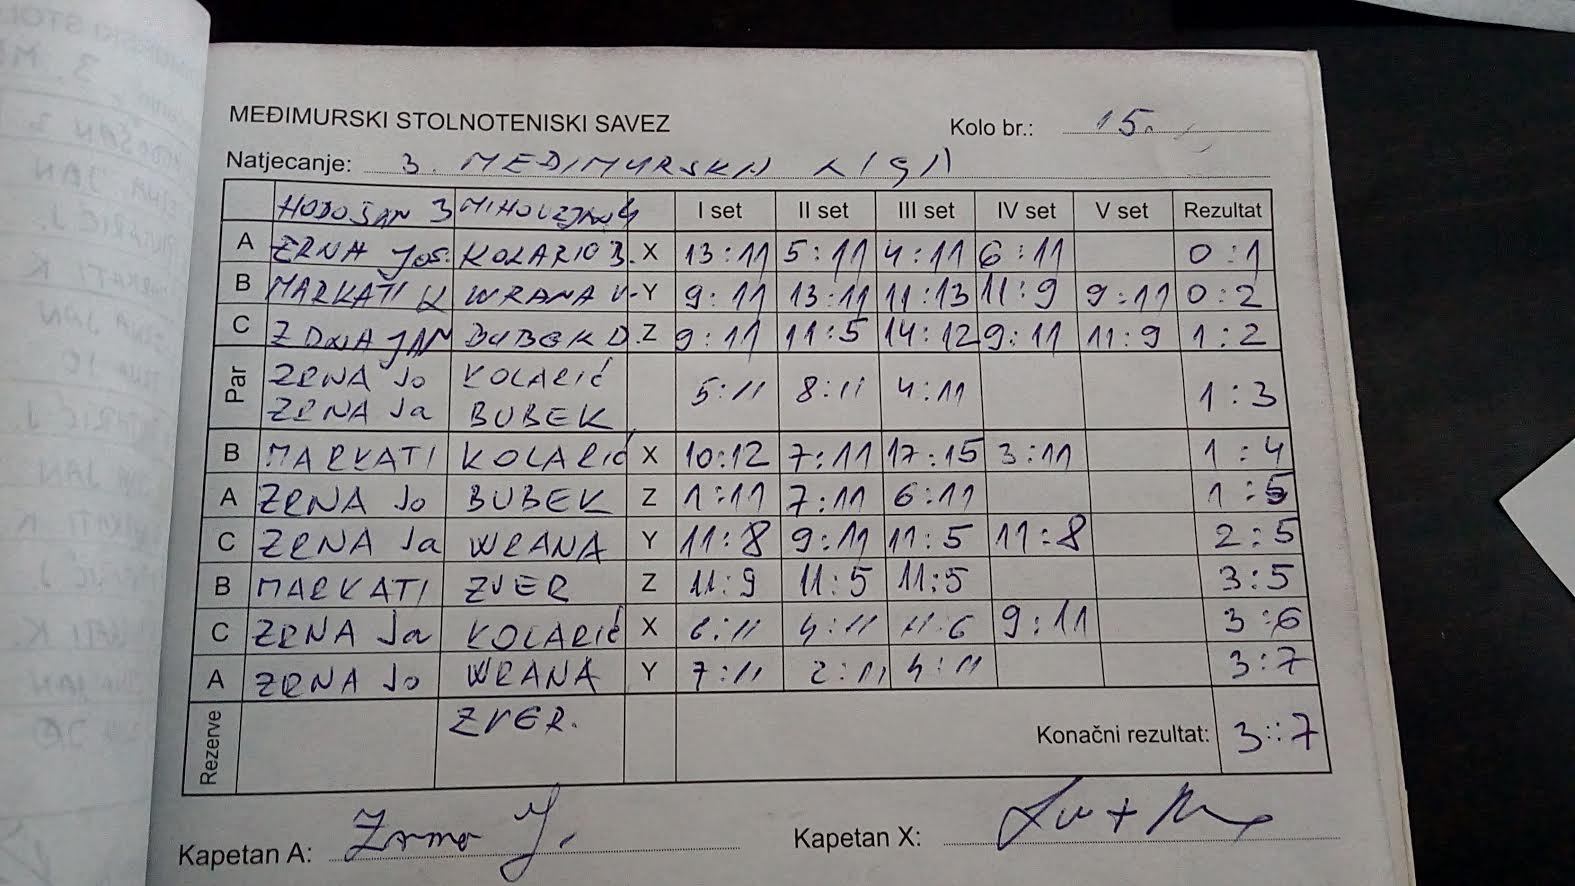 MEĐIMURSKI STOLNOTENISKI SAVEZ
Kolo br.: 15.
Natjecanje: 3. MEĐIMURSKA LIGA
HODOŠAN 3 MIHOVLJAN 4 I set II set III set IV set V set Rezultat
A ZRNA Jos. KOLARIĆ 3. X 13:11 5:11 4:11 6:11 0:1
B MARKATI K WRANA V. Y 9:11 13:11 11:13 11:9 9:11 0:2
C ZRNA JAN BUBEK D. Z 9:11 11:5 14:12 9:11 11:9 1:2
Par ZRNA Jo KOLARIĆ 5:11 8:11 4:11 1:3
ZRNA Ja BUBEK
B MARKATI KOLARIĆ X 10:12 7:11 17:15 3:11 1:4
A ZRNA Jo BUBEK Z 1:11 7:11 6:11 1:5
C ZRNA Ja WRANA Y 11:8 9:11 11:5 11:8 2:5
B MARKATI ZVER Z 11:9 11:5 11:5 3:5
C ZRNA Ja KOLARIĆ X 6:11 4:11 11:6 9:11 3:6
A ZRNA Jo WRANA Y 7:11 2:11 4:11 3:7
Rezerve ZVER. Konačni rezultat: 3:7
Kapetan A: Zrna J. Kapetan X: